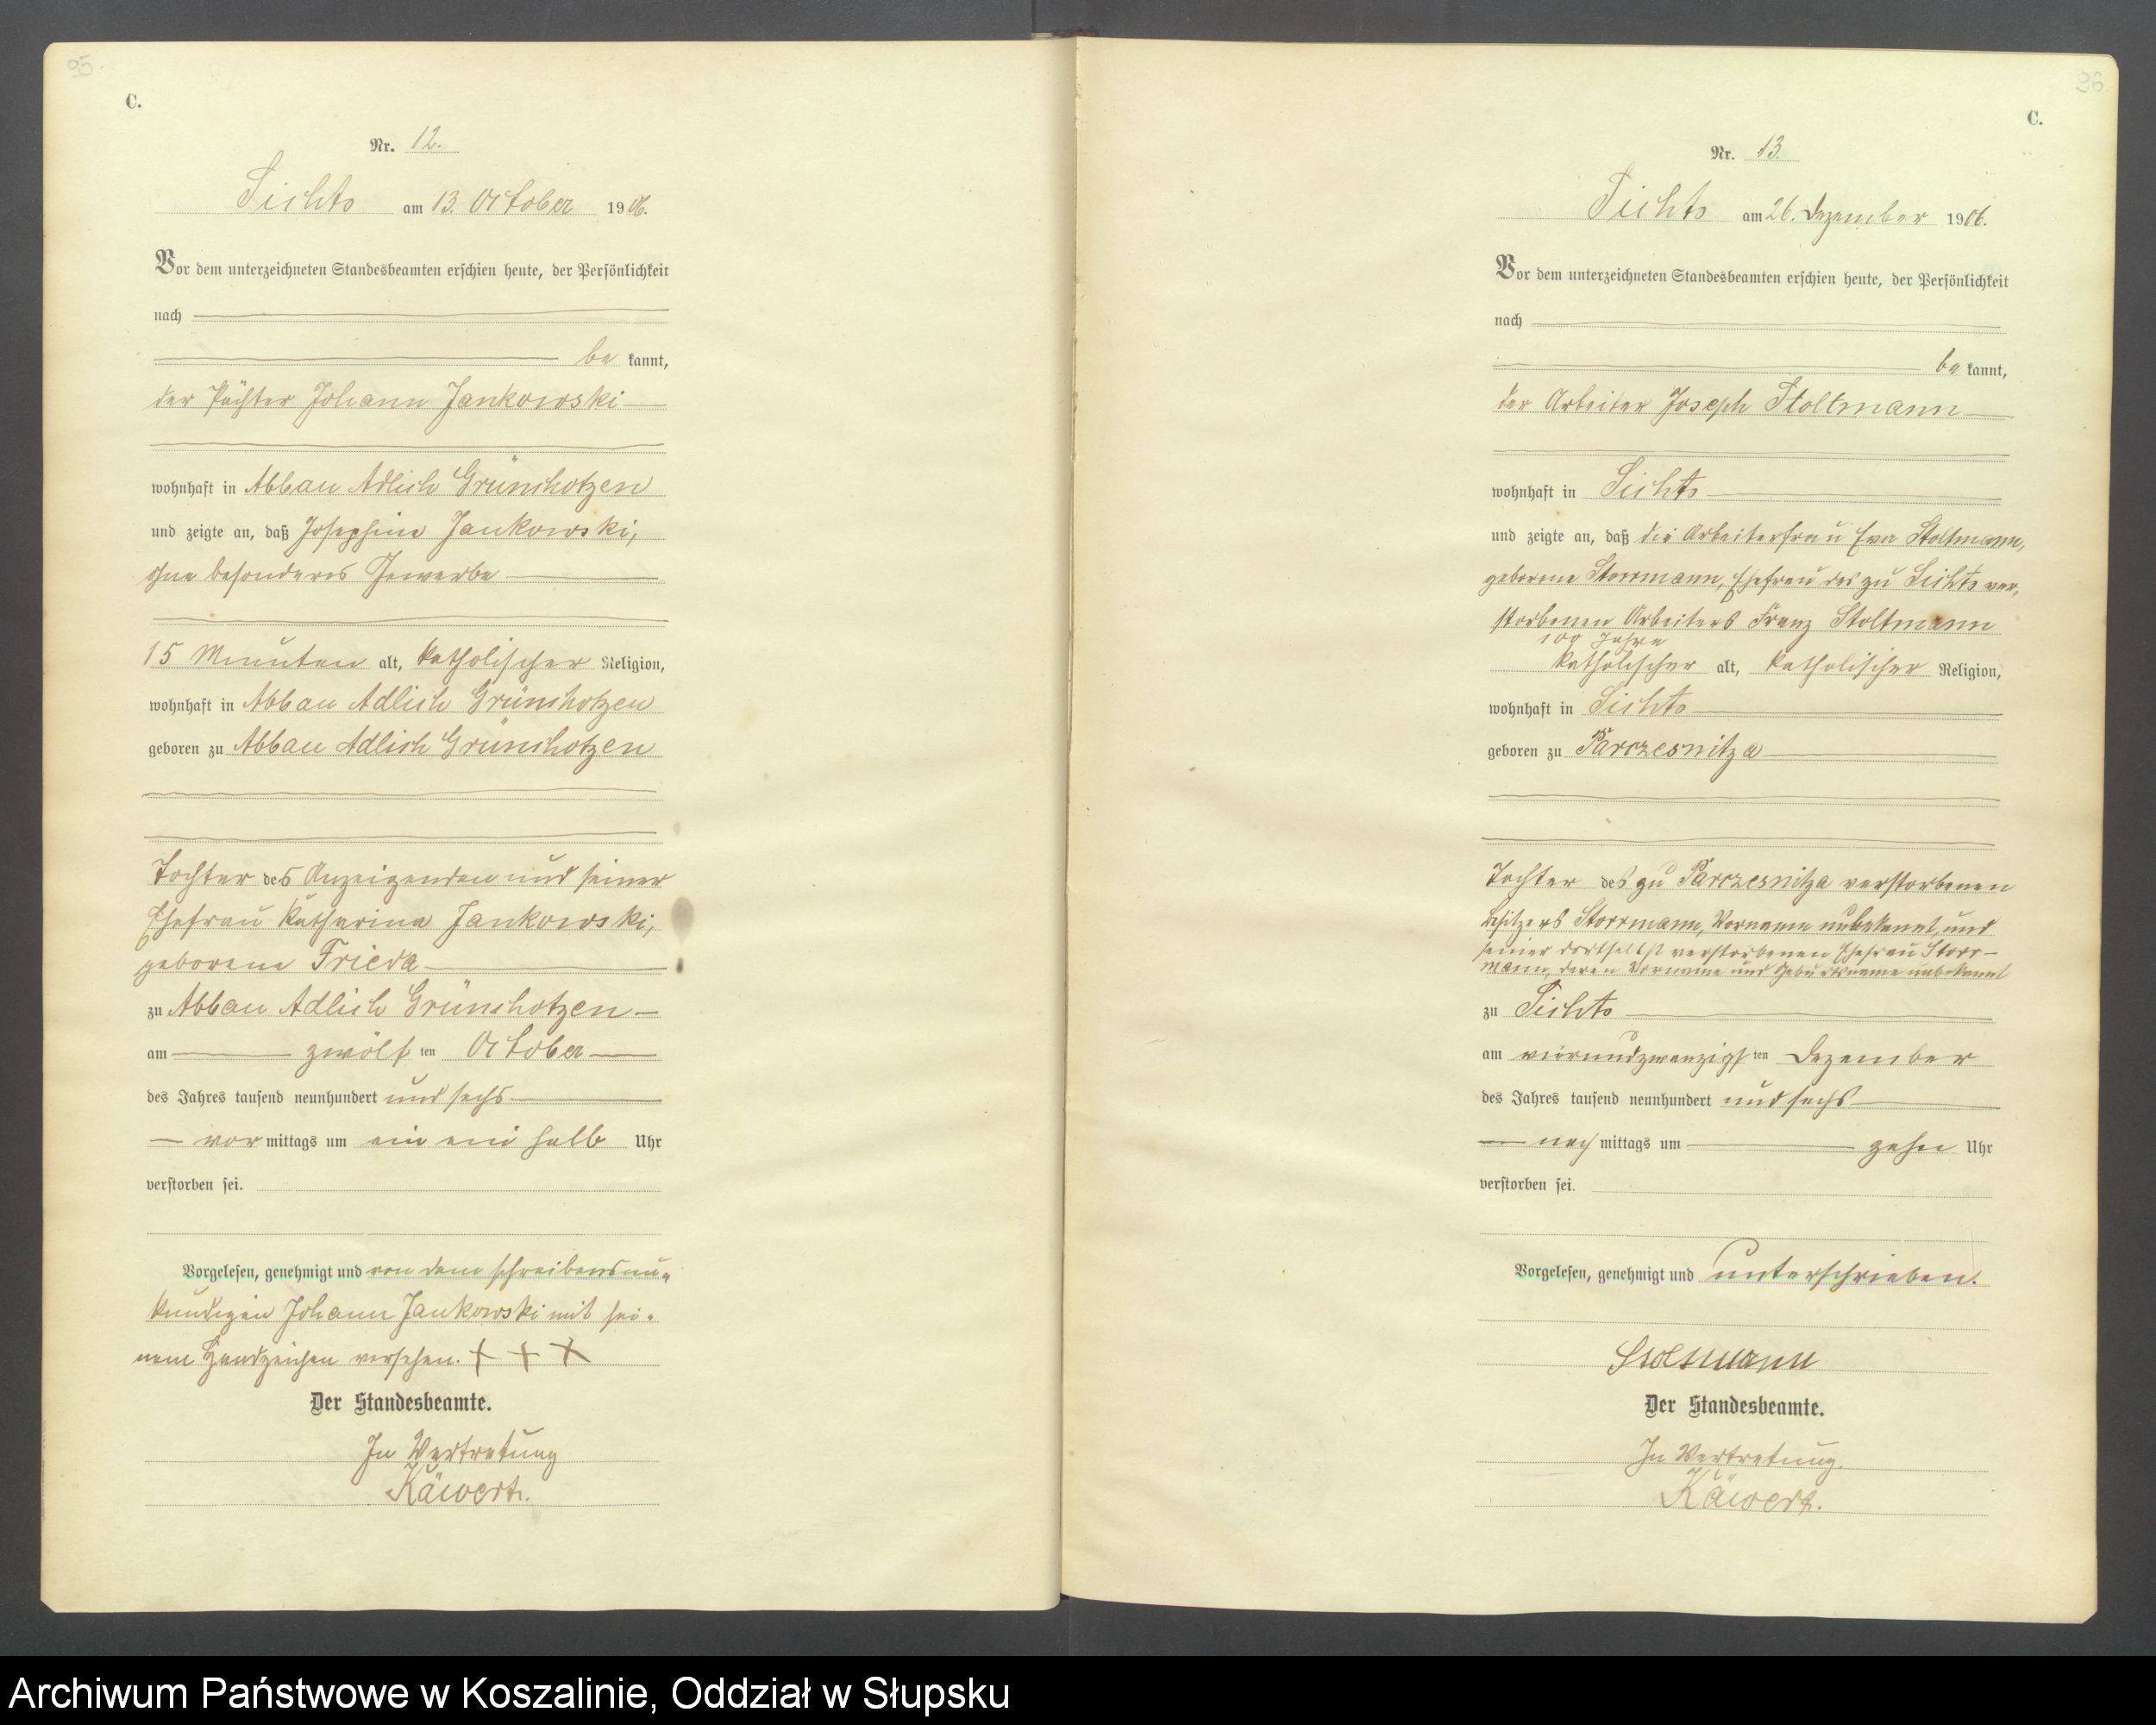 95
C.
Nr. 12.
Sichts am 13. October 1906.
Vor dem unterzeichneten Standesbeamten erschien heute, der Persönlichkeit
nach
be kannt,
der Pächter Johann Jankowski
wohnhaft in Abbau Adlich Grünchotzen
und zeigte an, daß Josephine Jankowski,
ohne besonderes Gewerbe
15 Minuten alt, katholischer Religion,
wohnhaft in Abbau Adlich Grünchotzen
geboren zu Abbau Adlich Grünchotzen
Tochter des Anzeigenden und seiner
Ehefrau Katharina Jankowski,
geborene Frieda
zu Abbau Adlich Grünchotzen
am zwölf ten October
des Jahres tausend neunhundert und sechs
vor mittags um ein ein halb Uhr
verstorben sei.
Vorgelesen, genehmigt und von dem schreibensun-
kundigen Johann Jankowski mit sei-
nem Handzeichen versehen. + + +
Der Standesbeamte.
In Vertretung
Käwert.
C.
Nr. 13.
Sichts am 26. Dezember 1906.
Vor dem unterzeichneten Standesbeamten erschien heute, der Persönlichkeit
nach
be kannt,
der Arbeiter Joseph Stoltmann
wohnhaft in Sichts
und zeigte an, daß die Arbeiterfrau Eva Stoltmann,
geborene Storrmann, Ehefrau des zu Sichts ver-
storbenen Arbeiters Franz Stoltmann
100 Jahre
katholischer alt, katholischer Religion,
wohnhaft in Sichts
geboren zu Parczesnitza
Tochter des zu Parczesnitza verstorbenen
Besitzers Storrmann, Vorname unbekannt, und
seiner dortselbst verstorbenen Ehefrau Storr-
mann, deren Vorname und Geburtsname unbekannt
zu Sichts
am vierundzwanzigs ten Dezember
des Jahres tausend neunhundert und sechs
nach mittags um zehn Uhr
verstorben sei.
Vorgelesen, genehmigt und unterschrieben.
Stoltmann
Der Standesbeamte.
In Vertretung.
Käwert.
Archiwum Państwowe w Koszalinie, Oddział w Słupsku